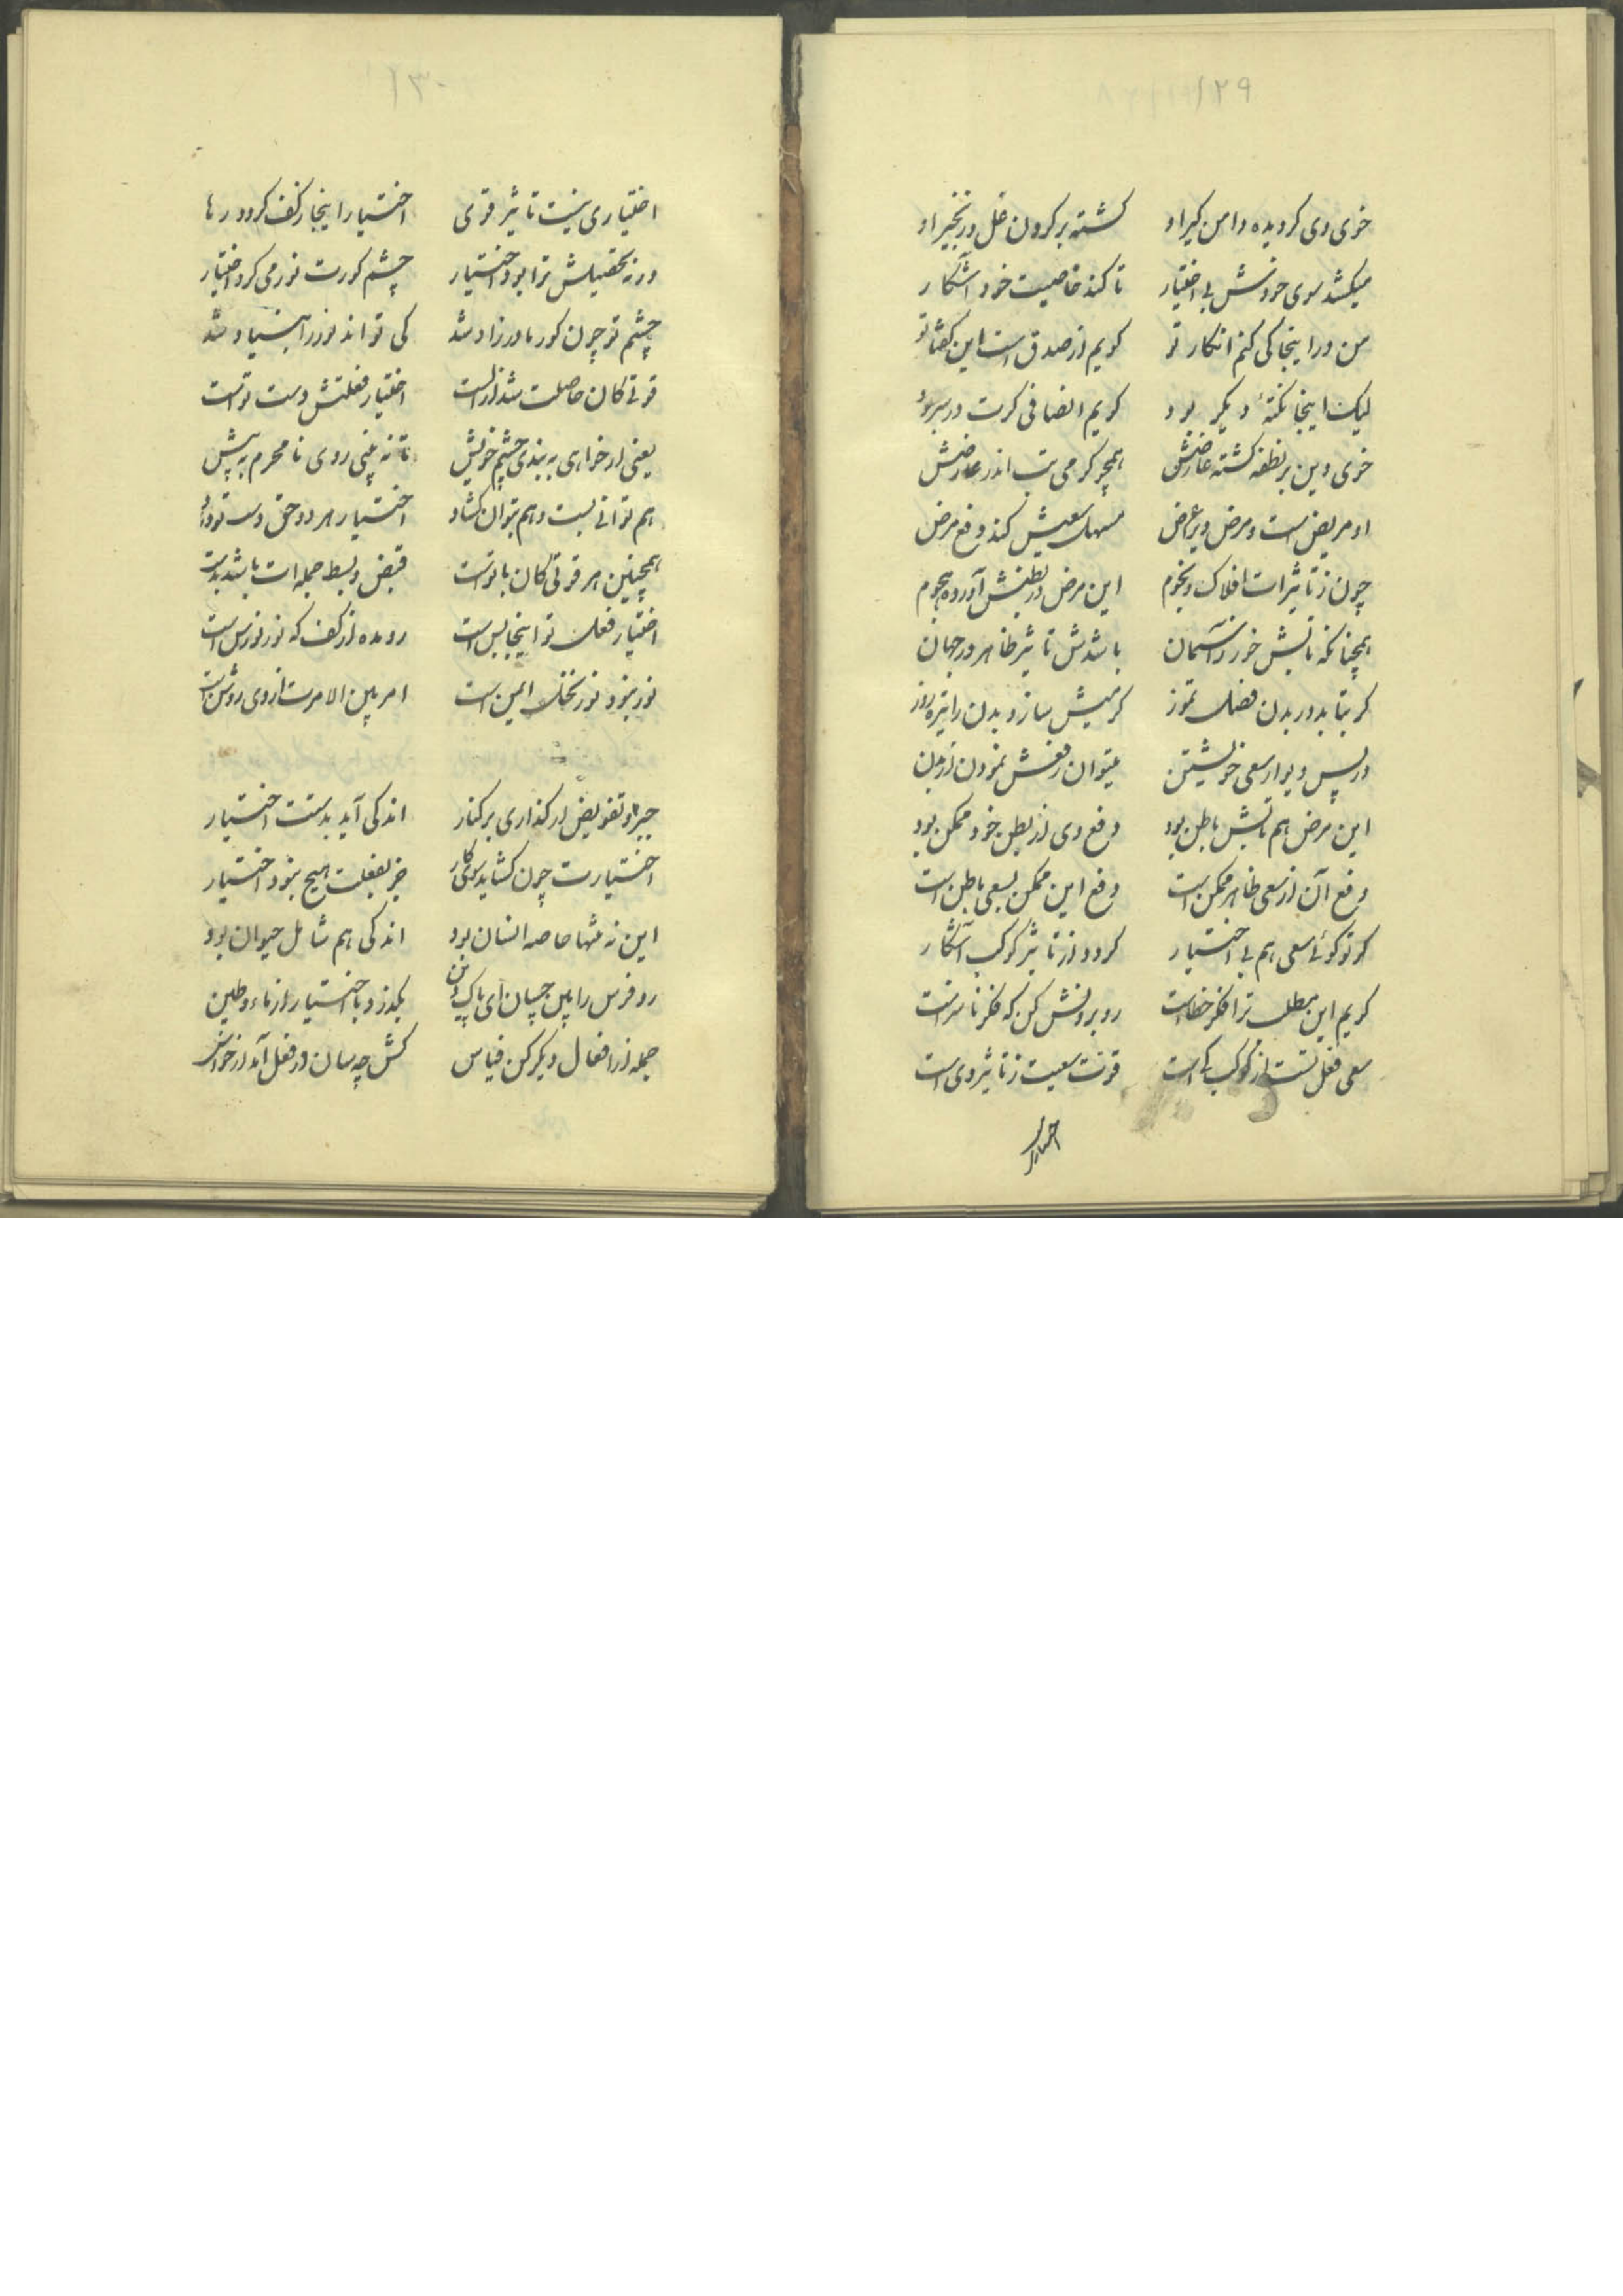 ۱۲۹
خوی وی کردیده دامن کیر او کشته بر کردن غل و زنجیر او
میکشد سوی خودش بی اختیار تا کند خاصیت خود آشکار
من در اینجا کی کنم انکار تو کویم از صدق است این کفتار تو
لیک اینجا نکتهٔ دیکر بود کویم انصافی کرت در سر بود
خوی و بن بر نطفه کشته عارضش همچو کرمی تب اندر عارضش
او مریض است و مرض ویرا عرض مسهل سعیش کند دفع مرض
چون ز تاثیرات افلاک و نجوم این مرض در بطنش آورده هجوم
همچنانکه تابش خور ز آسمان باشدش تاثیر ظاهر در جهان
کر بتابد در بدن فصل تموز کرمیش سازد بدن را تیره روز
در پس دیوار سعی خویشتن میتوان دفعش نمودن از بدن
این مرض هم تابش باطن بود دفع وی از بطن خود ممکن بود
دفع آن از سعی ظاهر ممکن است دفع این ممکن بسعی باطن است
کر تو کوئی سعی هم بی اختیار کردد از تاثیر کوکب آشکار
کویم این مطلب ترا فکر خطاست رو برونش کن که فکر نارساست
سعی فعل تست از کوکب کی است قوت سعیت ز تاثیر وی است
۱۳۰
اختیاری نیست تاثیر قوی اختیار اینجا ز کف کردد رها
ور نه تحصیلش ترا بود اختیار چشم کورت نور می کرد اختیار
چشم تو چون کور مادرزاد شد کی تواند نور را بنیاد شد
قوتی کان حاصلت شد از الست اختیار فعلتش دست تو است
یعنی ار خواهی به بندی چشم خویش تا نه بینی روی نا محرم به پیش
هم توانی بست و هم بتوان کشاد اختیار هر دو حق دست تو داد
همچنین هر قوتی کان با تو است قبض و بسط جمله ات باشد بدست
اختیار فعل تو اینجا بس است رو مده از کف که نور نورس است
نور بنود نور نخل ایمن است امر بین الامرت از وی روشن است
جبر و تفویض ار کذاری بر کنار اندکی آید بدستت اختیار
اختیارت چون کشاید سوی کار جز بفعلت هیچ بنود اختیار
این نه تنها خاصه انسان بود اندکی هم شامل حیوان بود
رو فرس را بین چسان ای پاک دین بکذرد با اختیار از ماء و طین
جمله از افعال دیکر کن قیاس کش چه سان در فعل آید از حواس